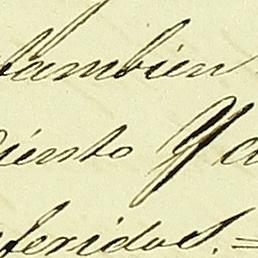 tambien
iento Y a
feridos. =